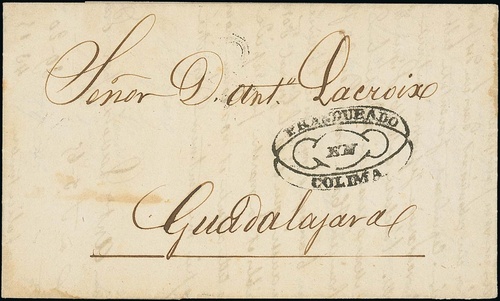 Señor D. Ant.º Lacroix
FRANQUEADO
EN
COLIMA
Guadalajara